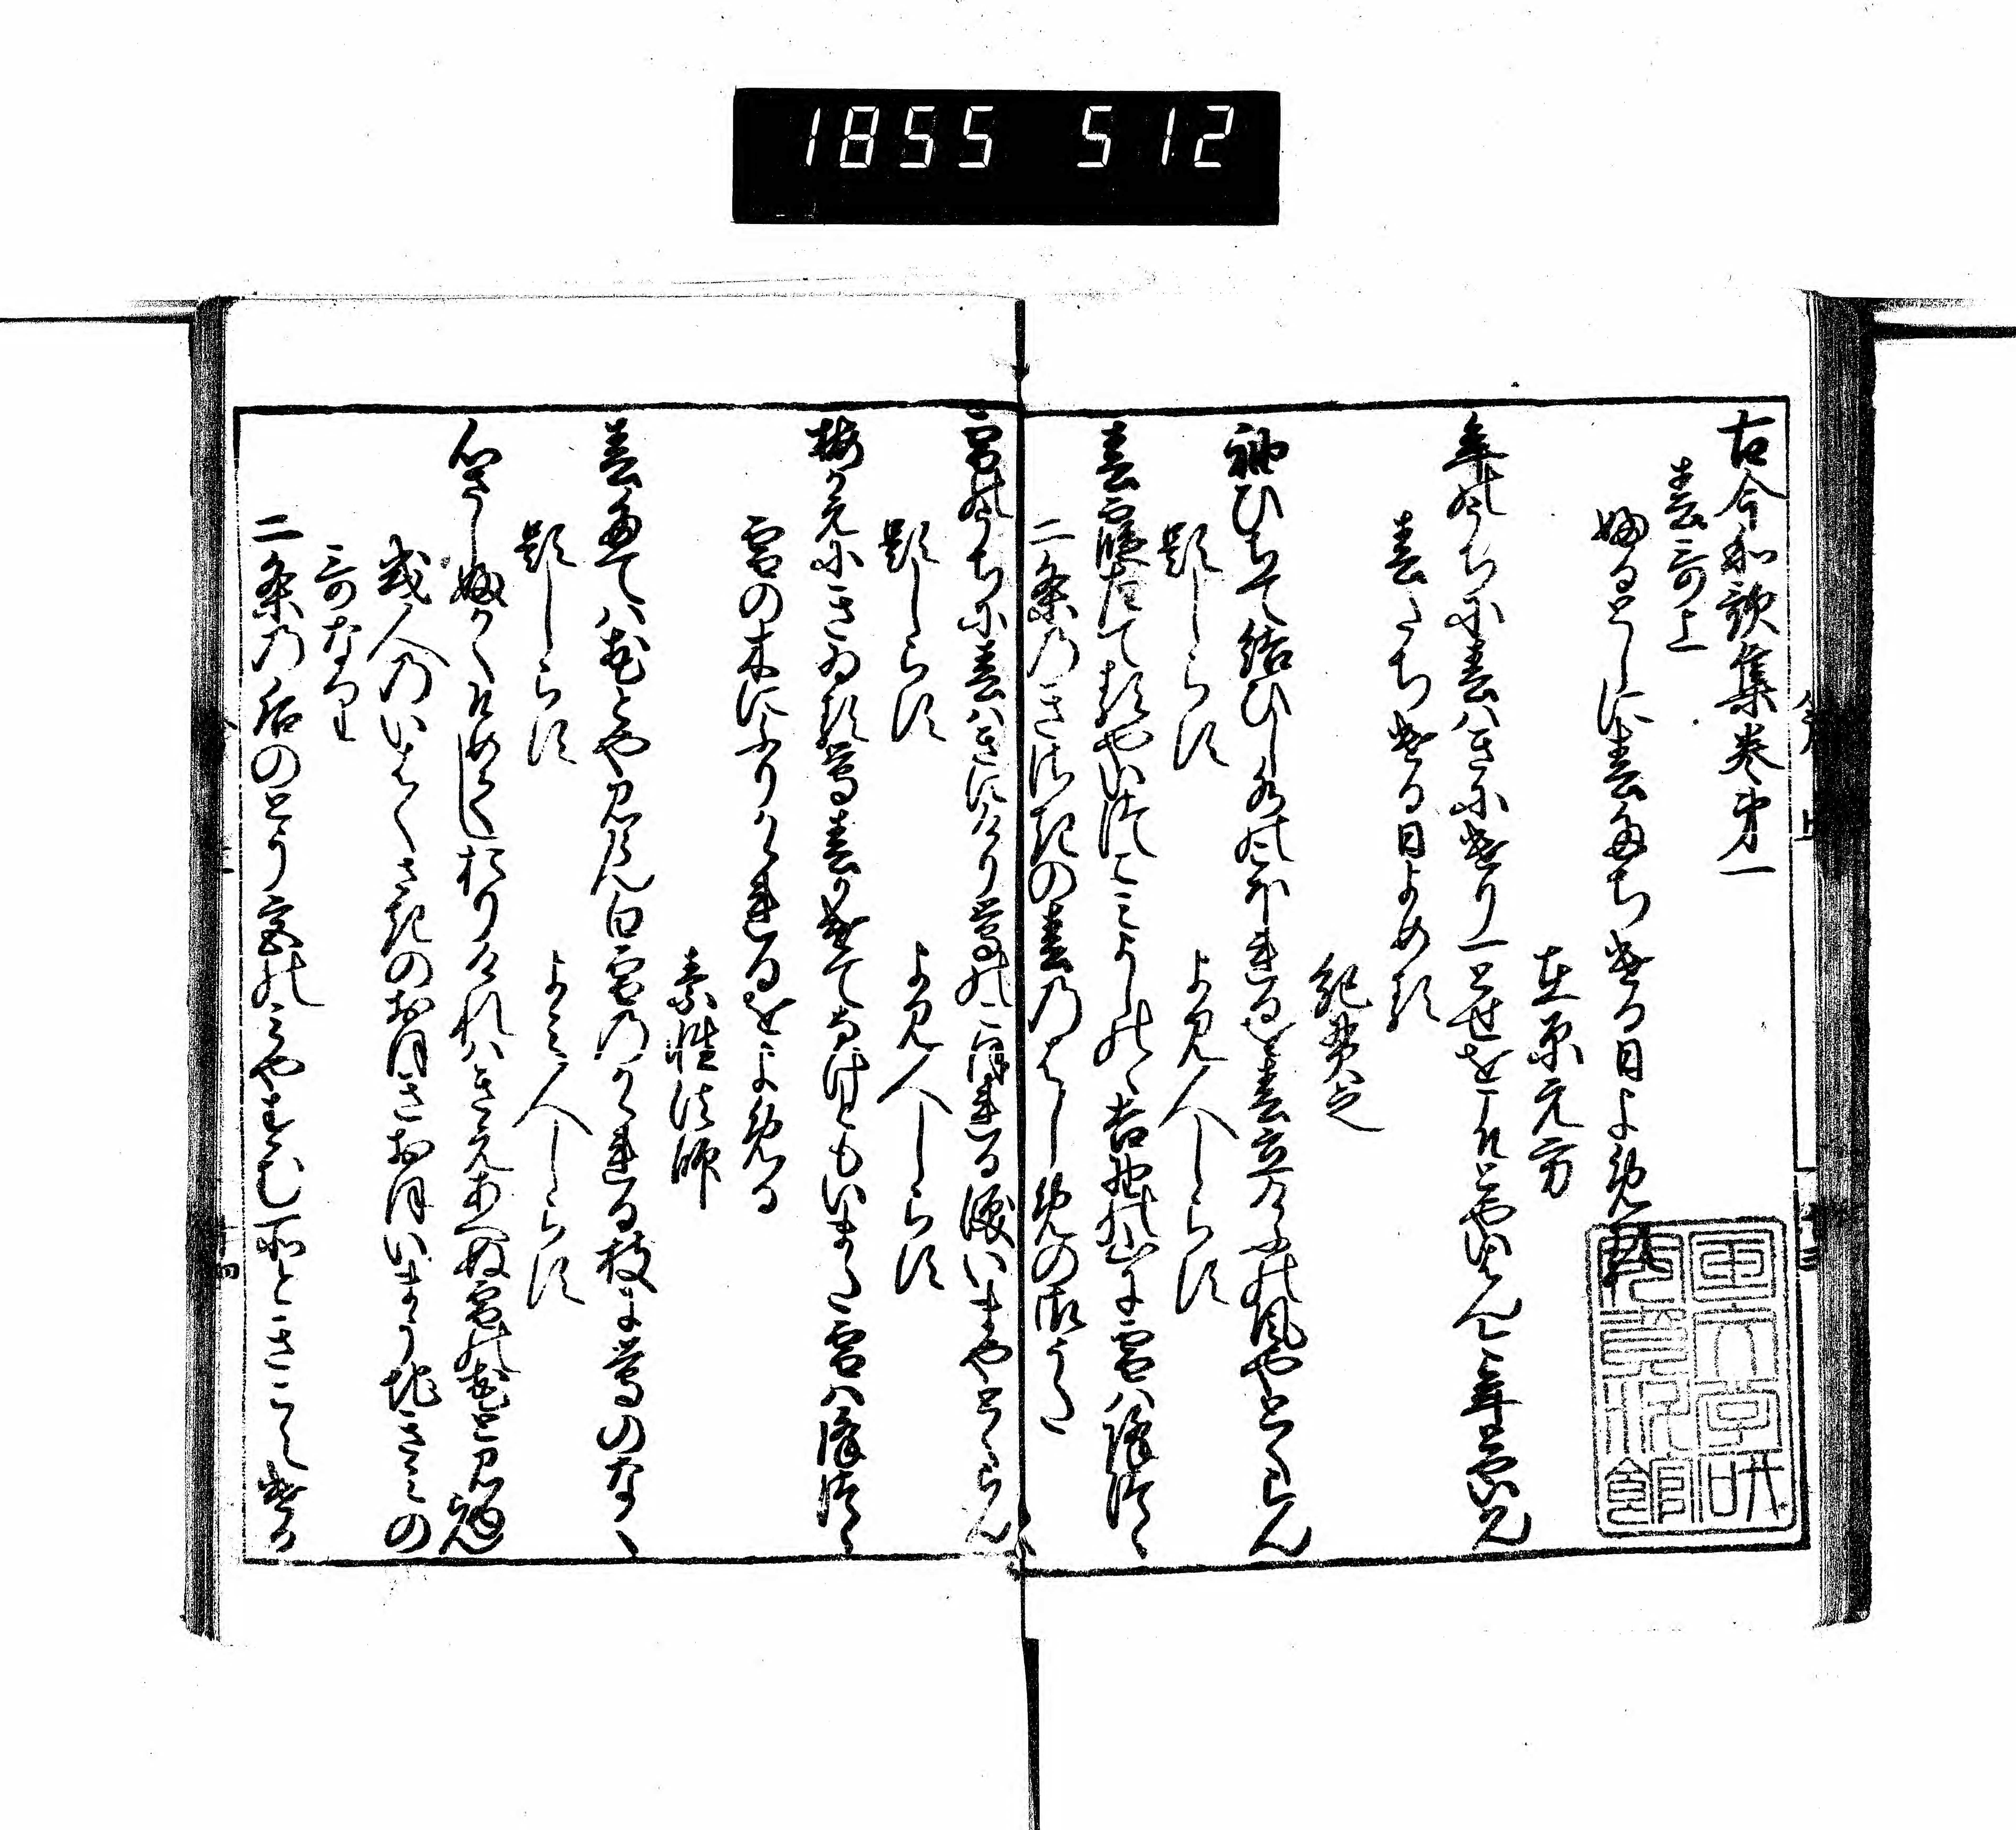 1855 512
古今和歌集巻第一
春哥上
ふるとしに春たちける日よめる
在原元方
年のうちに春はきにけり一とせをこそとやいはんことしとやいはん
春たちける日よめる
紀貫之
袖ひちて結ひし水のこほれるを春立けふの風やとくらん
題しらす
よみ人しらす
春霞たてるやいつこみよしのゝ吉野の山に雪はふりつゝ
二条のきさきの春のはしめの御うた
雪のうちに春はきにけり鶯のこほれる涙いまやとくらん
題しらす
よみ人しらす
梅かえにきゐる鶯春かけてなけともいまた雪はふりつゝ
雪の木にふりかゝれるをよめる
素性法師
春たては花とや見らん白雪のかゝれる枝に鶯のなく
題しらす
よみ人しらす
心さしふかくそめてしおりけれはきえあへぬ雪の花と見ゆらん
或人のいはくさきのおほきおほいまうちきみの
哥なり
二条の后のとう宮のみやすむ所ときこえける